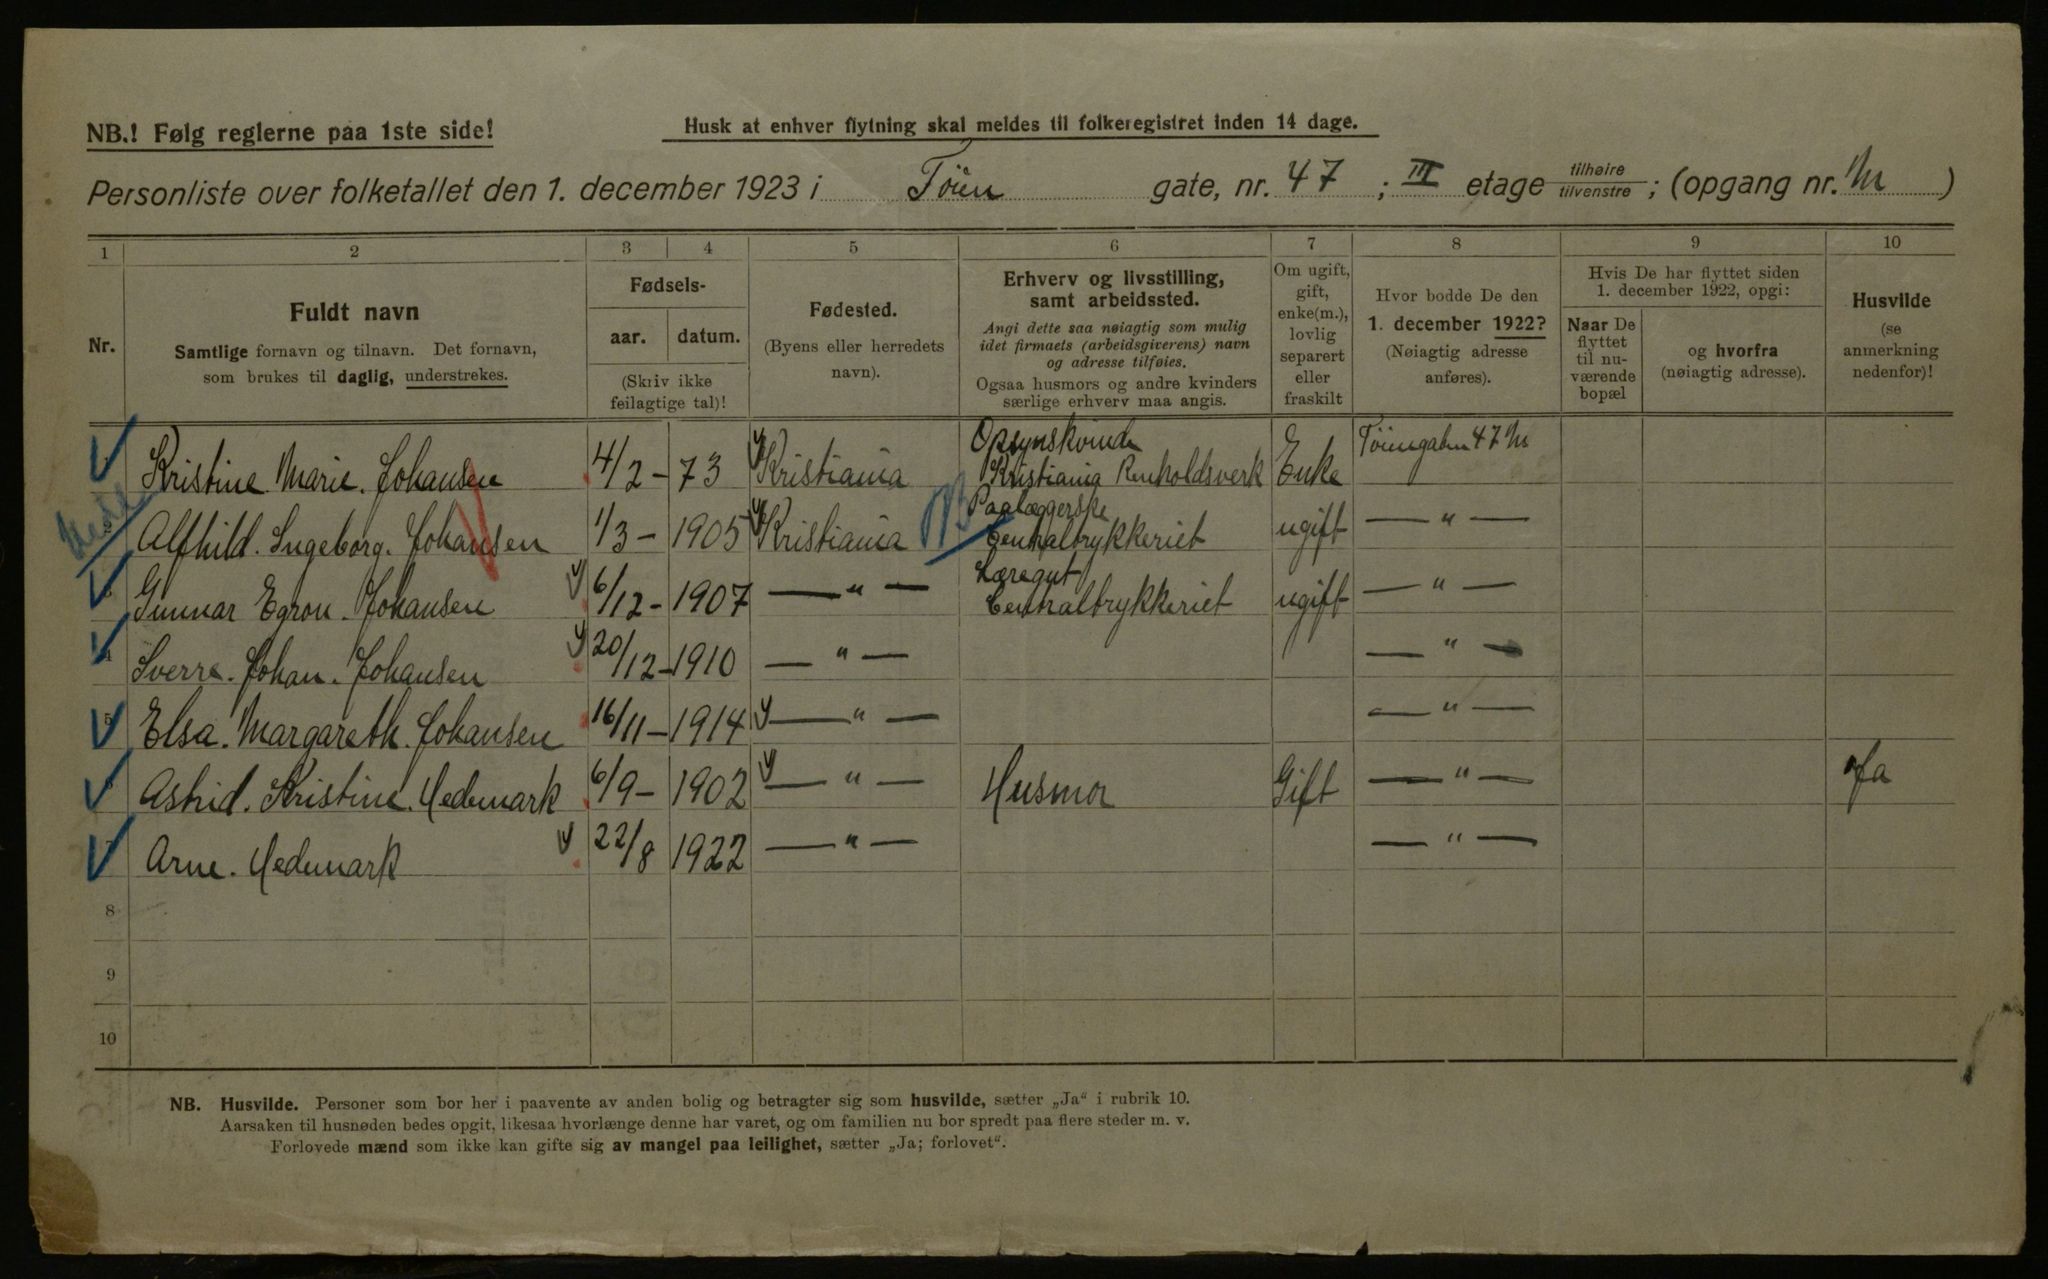 NB.! Følg reglerne paa 1ste side!
Husk at enhver flytning skal meldes til folkeregistret inden 14 dage.
Personliste over folketallet den 1. december 1923 i Tøien gate, nr. 47 ; III etage tilhøire tilvenstre ; (opgang nr. M )
1 2 3 4 5 6 7 8 9 10
Nr.
Fuldt navn
Samtlige fornavn og tilnavn. Det fornavn,
som brukes til daglig, understrekes.
Fødsels-
aar. datum.
(Skriv ikke
feilagtige tal)!
Fødested.
(Byens eller herredets
navn).
Erhverv og livsstilling,
samt arbeidssted.
Angi dette saa nøiagtig som mulig
idet firmaets (arbeidsgiverens) navn
og adresse tilføies.
Ogsaa husmors og andre kvinders
særlige erhverv maa angis.
Om ugift,
gift,
enke(m.),
lovlig
separert
eller
fraskilt
Hvor bodde De den
1. december 1922?
(Nøiagtig adresse
anføres).
Hvis De har flyttet siden
1. december 1922, opgi:
Naar De
flyttet
til nu-
værende
bopæl
og hvorfra
(nøiagtig adresse).
Husvilde
(se
anmerkning
nedenfor)!
Kristine Marie. Johansen 4/2 - 73 Kristiania Opsynskvinde Kristiania Renholdsverk Enke Tøiengaten 47 M
2 Alfhild. Ingeborg. Johansen 1/3 - 1905 Kristiania Paalæggerske Centraltrykkeriet ugift — " —
3 Gunnar Egron. Johansen 6/12 - 1907 — " — Læregut Centraltrykkeriet ugift — " —
4 Sverre. Johan. Johansen 20/12 - 1910 — " — — " —
5 Elsa. Margareth. Johansen 16/11 - 1914 — " — — " —
Astrid. Kristine. Hedemark 6/9 - 1902 — " — Husmor Gift — " — Ja
Arne. Hedemark 22/8 1922 — " — — " —
8
9
10
NB. Husvilde. Personer som bor her i paavente av anden bolig og betragter sig som husvilde, sætter „Ja" i rubrik 10.
Aarsaken til husnøden bedes opgit, likesaa hvorlænge denne har varet, og om familien nu bor spredt paa flere steder m. v.
Forlovede mænd som ikke kan gifte sig av mangel paa leilighet, sætter „Ja; forlovet".